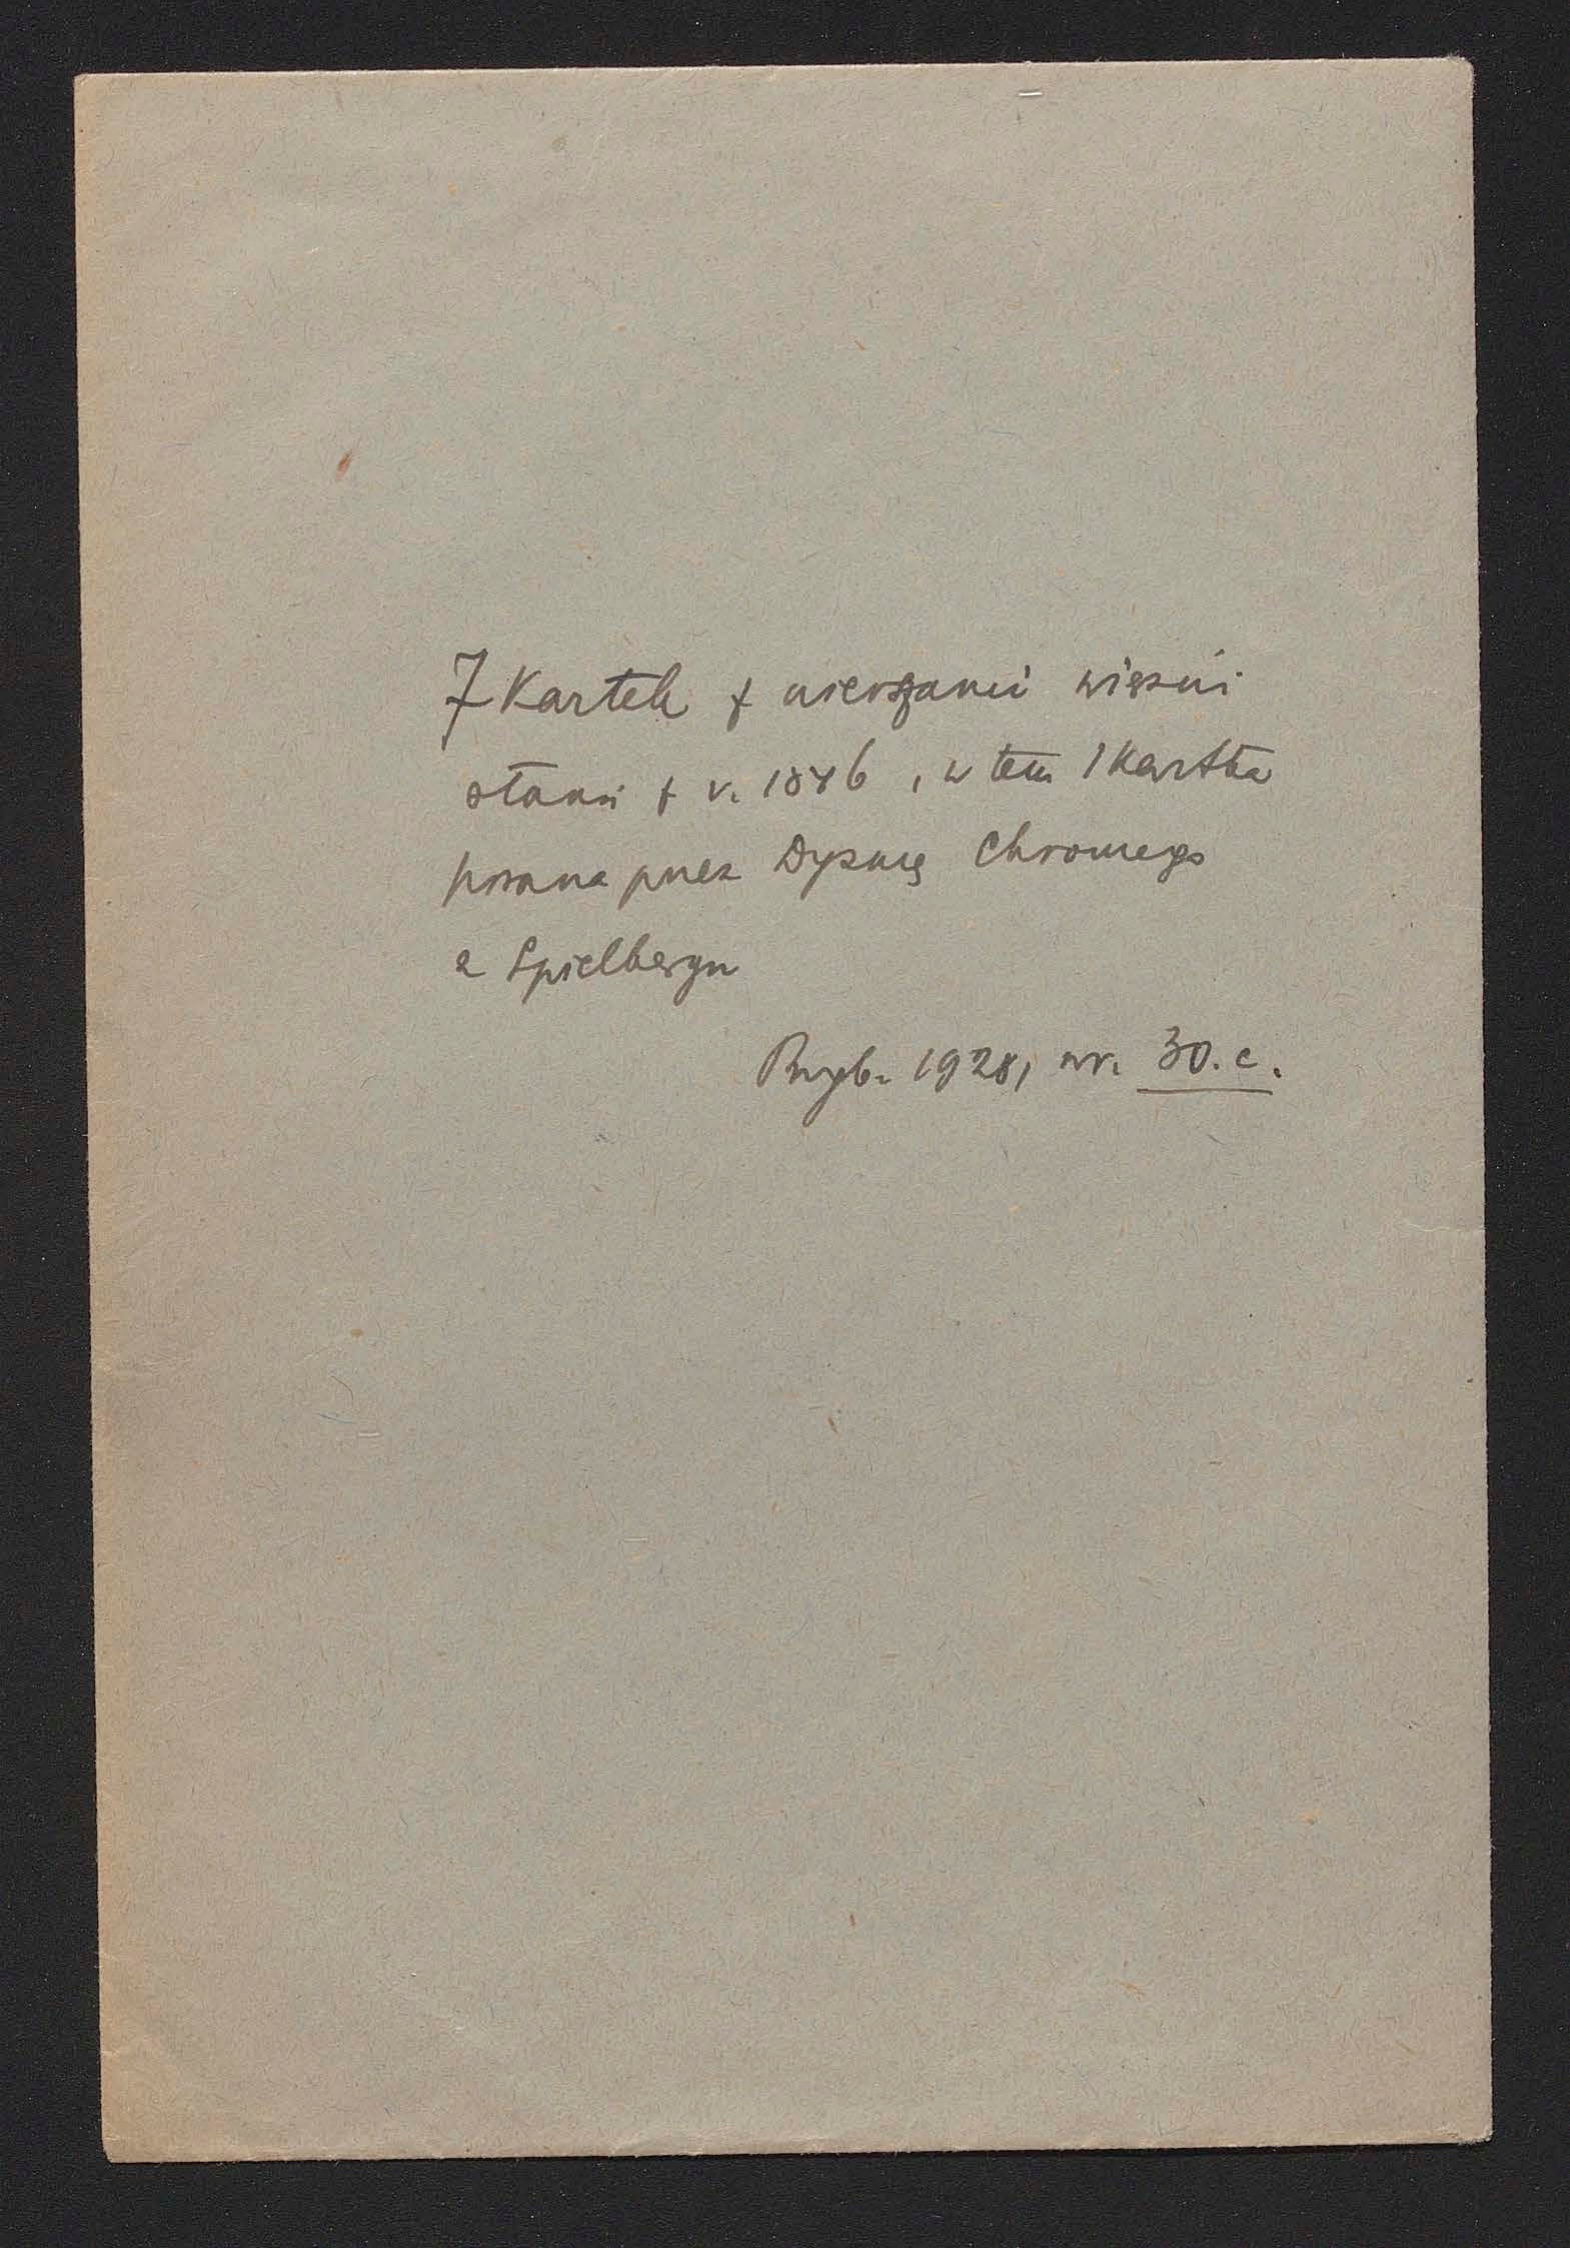 7 Kartek z wierszami więźni
stanu z r. 1846, w tem 1 Kartka
pisana przez Dyzmę Chromego
z Spielbergu
Przyb. 1928, nr. 30.c.